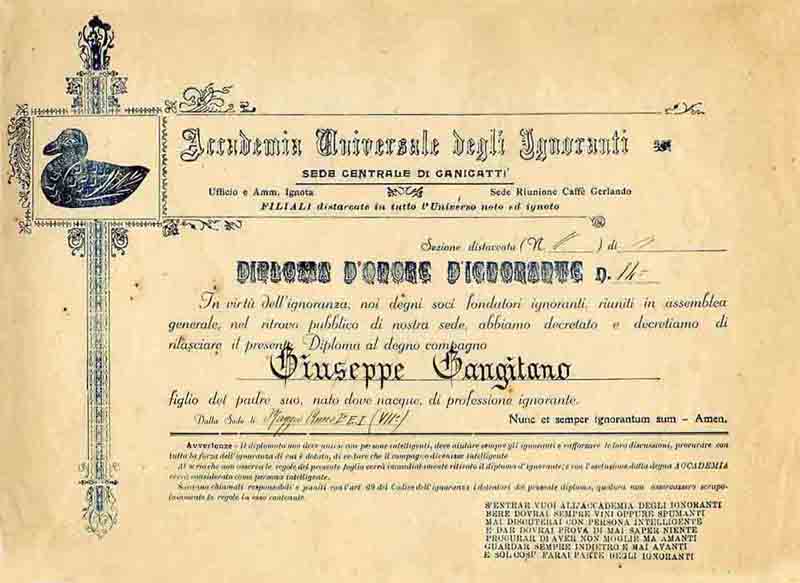 Accademia Universale degli Ignoranti
SEDE CENTRALE DI CANICATTÌ
Ufficio e Amm. Ignota Sede Riunione Caffè Gerlando
FILIALI distaccate in tutto l'Universo noto ed ignoto
Sezione distaccata (N ) di
DIPLOMA D'ONORE D'IGNORANTE N. 14
In virtù dell'ignoranza, noi degni soci fondatori ignoranti, riuniti in assemblea
generale, nel ritrovo pubblico di nostra sede, abbiamo decretato e decretiamo di
rilasciare il presente Diploma al degno compagno
Giuseppe Gangitano
figlio del padre suo, nato dove nacque, di professione ignorante.
Dalla Sede li Maggio Anno (VII°) Nunc et semper ignorantum sum - Amen.
Avvertenze - Il diplomato non deve unirsi con persone intelligenti, deve aiutare sempre gli ignoranti e rafforzare le loro discussioni, procurare con
tutta la forza dell'ignoranza di cui è dotato, di evitare che il compagno divenisse intelligente
Al socio che non osserva le regole del presente foglio verrà immediatamente ritirato il diploma d'ignorante, e con l'esclusione dalla degna ACCADEMIA
verrà considerato come persona intelligente.
Saranno chiamati responsabili e puniti con l'art. 69 del Codice dell'ignoranza i detentori del presente diploma, qualora non osservassero scrupo-
losamente le regole in esso contenute.
S'ENTRAR VUOI ALL'ACCADEMIA DEGLI IGNORANTI
BERE DOVRAI SEMPRE VINI OPPURE SPUMANTI
MAI DISCUTERAI CON PERSONA INTELLIGENTE
E DAR DOVRAI PROVA DI MAI SAPER NIENTE
PROCURAR DI AVER NON MOGLIE MA AMANTI
GUARDAR SEMPRE INDIETRO E MAI AVANTI
E SOL COSÌ FARAI PARTE DEGLI IGNORANTI